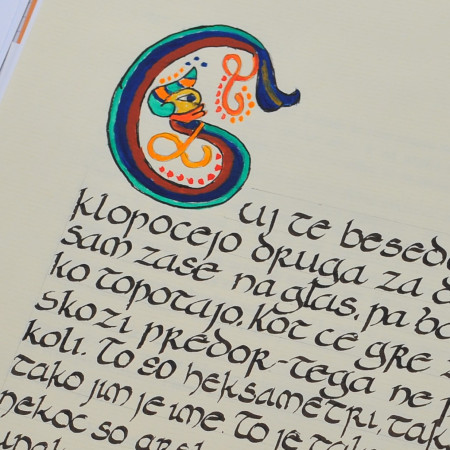 Cuj te besed
klopocejo druga za
sam zase na glas, pa bo
ko topotajo. Kot ce gre z
skozi predor-tega ne
koli. To so heksametri, tak
tako jim je ime. To je tak
nekoc so